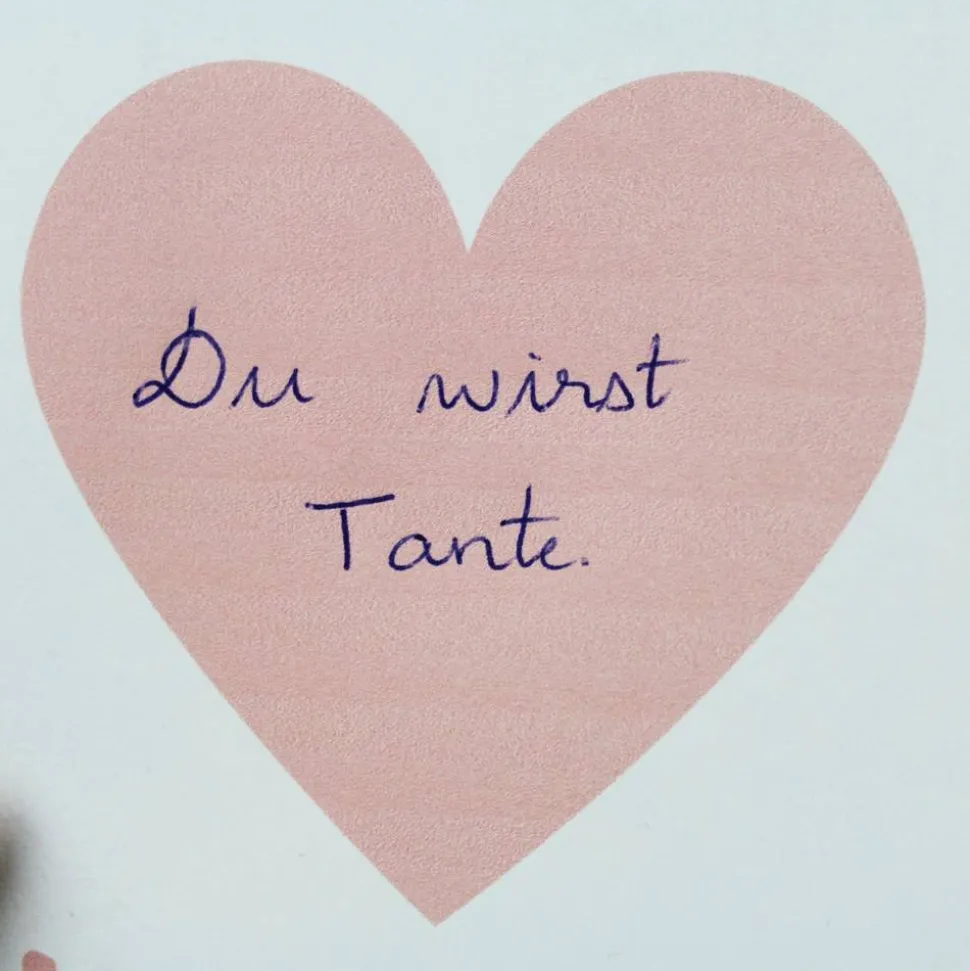 Du wirst
Tante.